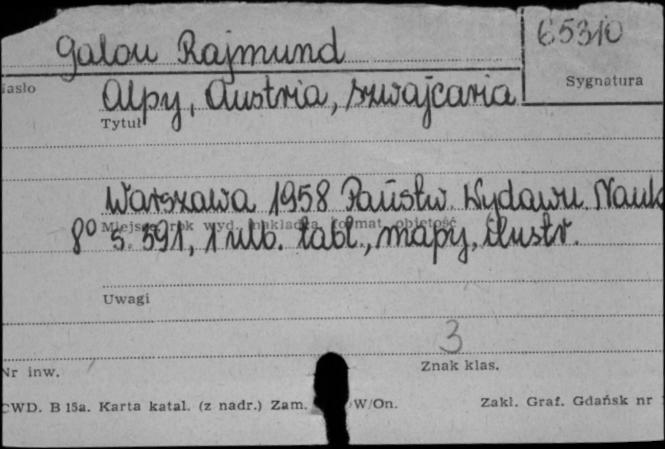 65310
Galon Rajmund
Hasło
Sygnatura
Alpy, Austria, Szwajcaria
Tytuł
Warszawa 1958 Państw. Wydawn. Nauk
Miejsce rok wyd. nakładca format objętość
8° s. 391, 1 nlb. tabl., mapy, ilustr.
Uwagi
3
Nr inw.
Znak klas.
CWD. B 15a. Karta katal. (z nadr.) Zam. W/On.
Zakł. Graf. Gdańsk nr